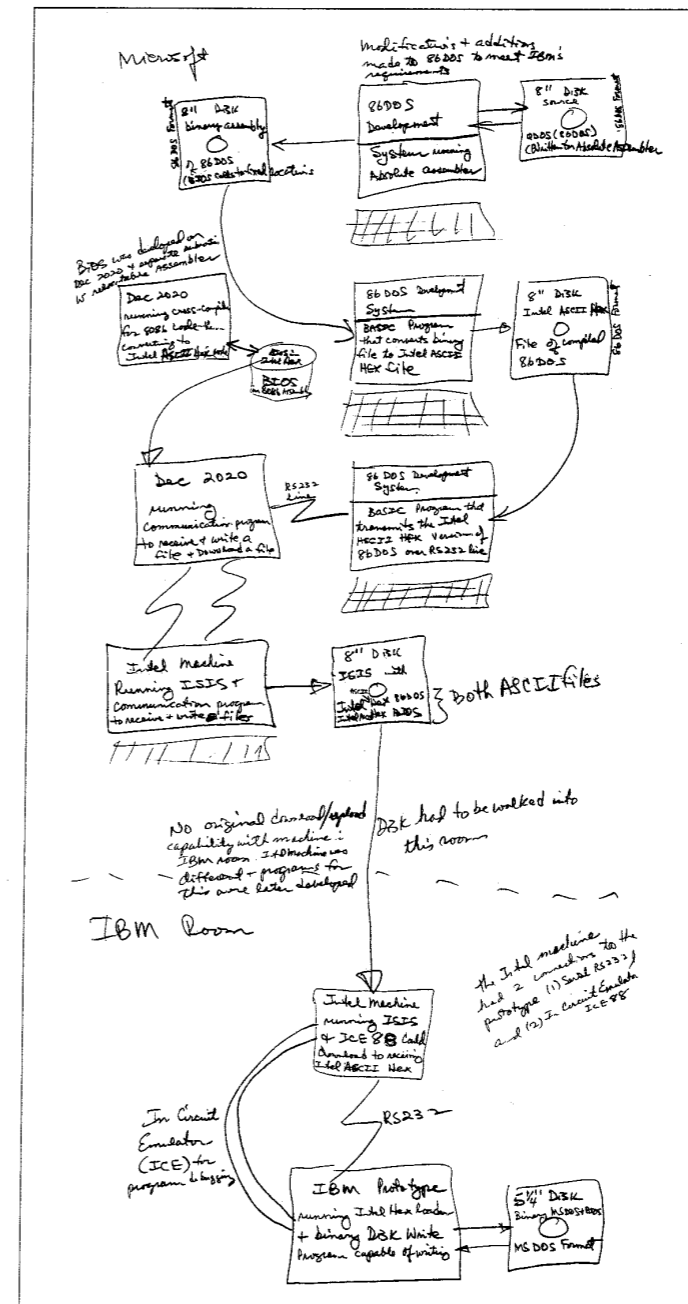 Microsoft
Modifications + additions
made to 86DOS to meet IBM's
requirements
8" DISK
binary assembly
of 86DOS
(BIOS calls to fixed locations
86DOS Format
86DOS
Development
System running
Absolute assembler
8" DISK
Source
QDOS (86DOS)
(Written for Absolute Assembler
86DOS Format
BIOS was developed on
Dec 2020 + separate
in relocatable Assembler
Dec 2020
running cross-compiler
for 8086 code then
converting to
Intel ASCII Hex
BIOS in
Intel Hex
BIOS
in 8086
86DOS Development
System
BASIC Program
that converts binary
file to Intel ASCII
HEX file
8" DISK
Intel ASCII Hex
File of compiled
86DOS
86DOS Format
Dec 2020
running
Communication program
to receive + write a
file + Download a file
RS232
Line
86 DOS Development
System
BASIC Program that
transmits the Intel
ASCII HEX Version of
86DOS over RS232 line
Intel Machine
Running ISIS +
Communication program
to receive + write files
8" DISK
ISIS with
ASCII
Intel Hex 86DOS
Intel Hex BIOS
Both ASCII files
No original download/upload
capability with machine in
IBM room. Intel machine was
different + programs for
this were later developed
DISK had to be walked into
this room
IBM Room
The Intel machine
had 2 connections to the
prototype (1) Serial RS232
and (2) In Circuit Emulator
ICE 88
Intel Machine
running ISIS
& ICE 88
download to receiving
Intel ASCII Hex
In Circuit
Emulator
(ICE) for
program debugging
RS232
IBM Prototype
running Intel Hex loader
+ binary DISK Write
Program capable of writing
5¼" DISK
Binary MSDOS+BIOS
MS DOS Format